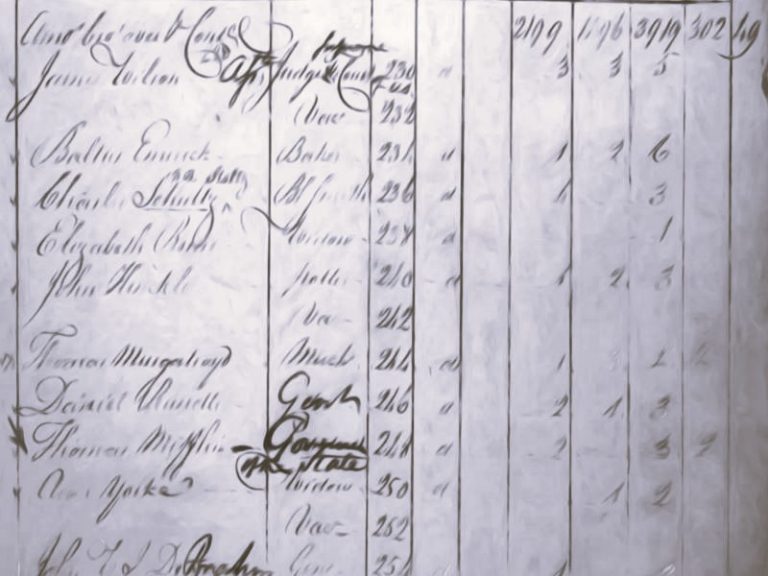 Amo.t bro.t over 2199 1596 3919 302 49
James Wilson Ass. Judge Supreme Court US 230 a 3 3 5
Vac- 232
Baltus Emerick Baker 234 a 1 2 6
Charles Schultz Bl Smith 236 a 1 3
Elizabeth Widow 238 a 1
John Hinckle Potter 240 a 1 2 3
Vac- 242
Thomas Murgatroyd Merch 244 a 1 2 2
Daniel Gent 246 a 2 1 3
Thomas Mifflin - Governor of the State 248 a 2 3 2
Ann Yorke Widow 250 a 1 2
Vac- 252
John Gent 254 a 1